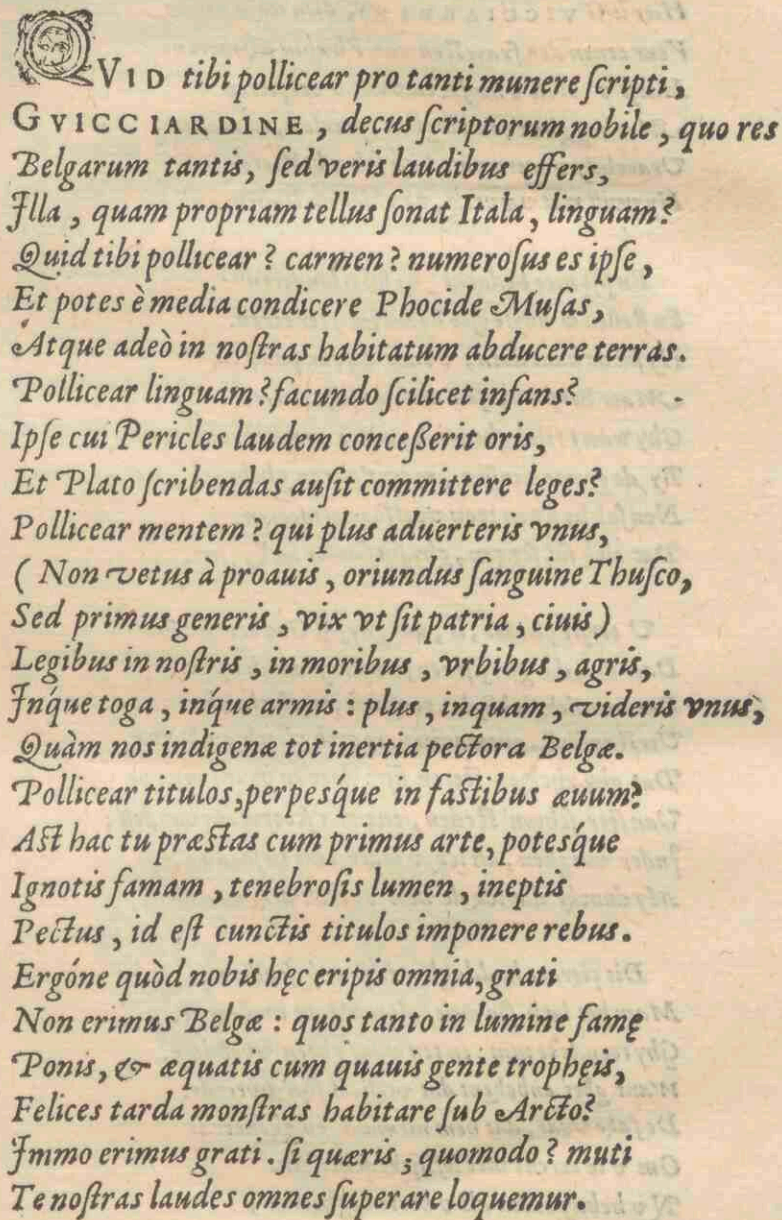 QVID tibi pollicear pro tanti munere ſcripti,
GVICCIARDINE, decus ſcriptorum nobile, quo res
Belgarum tantis, ſed veris laudibus effers,
Illa, quam propriam tellus ſonat Itala, linguam?
Quid tibi pollicear? carmen? numeroſus es ipſe,
Et potes è media condicere Phocide Muſas,
Atque adeò in noſtras habitatum abducere terras.
Pollicear linguam? facundo ſcilicet infans?
Ipſe cui Pericles laudem conceßerit oris,
Et Plato ſcribendas auſit committere leges?
Pollicear mentem? qui plus aduerteris vnus,
(Non vetus à proauis, oriundus ſanguine Thuſco,
Sed primus generis, vix vt ſit patria, ciuis)
Legibus in noſtris, in moribus, vrbibus, agris,
Inque toga, ínque armis: plus, inquam, videris vnus,
Quàm nos indigenæ tot inertia pectora Belgæ.
Pollicear titulos, perpesq́ue in faſtibus æuum?
Aſt hac tu præſtas cum primus arte, potesq́ue
Ignotis famam, tenebroſis lumen, ineptis
Pectus, id eſt cunctis titulos imponere rebus.
Ergóne quòd nobis hęc eripis omnia, grati
Non erimus Belgæ: quos tanto in lumine famę
Ponis, & æquatis cum quauis gente trophęis,
Felices tarda monſtras habitare ſub Arcto?
Immo erimus grati. ſi quæris; quomodo? muti
Te noſtras laudes omnes ſuperare loquemur.